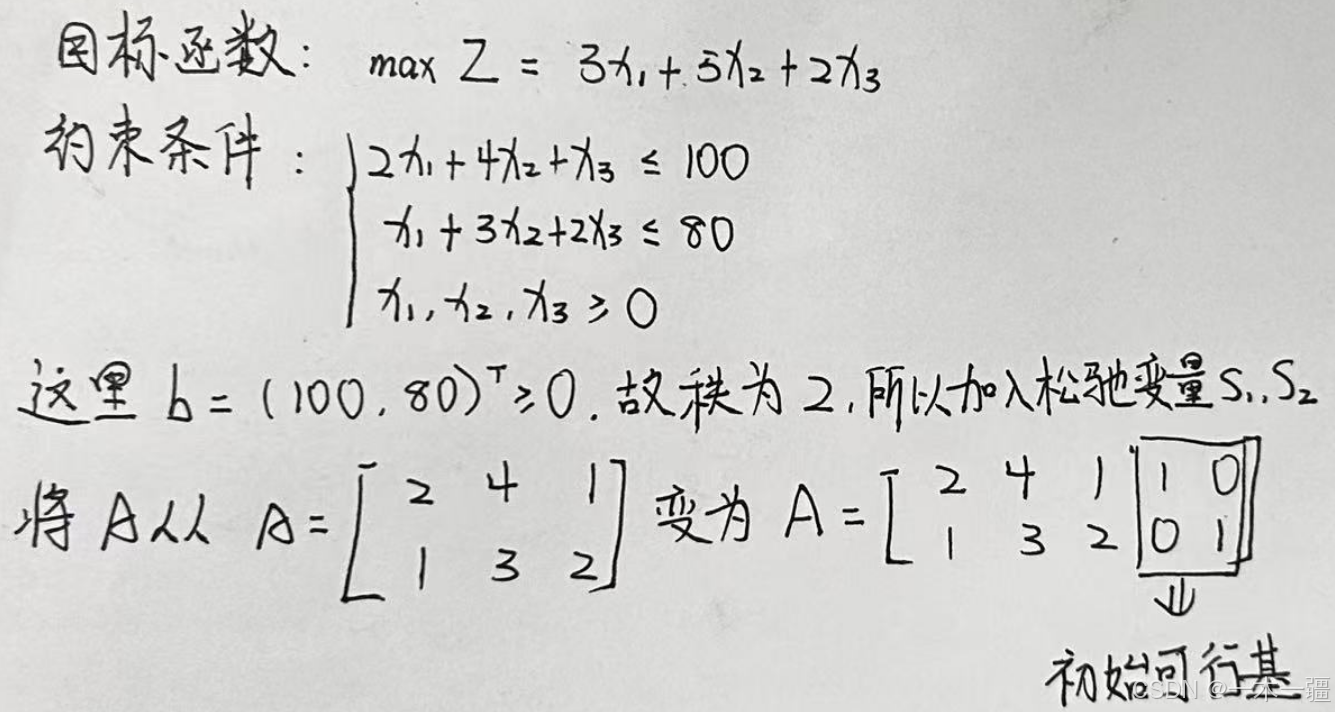 目标函数: max Z = 3x₁ + 5x₂ + 2x₃
约束条件: 2x₁ + 4x₂ + x₃ ≤ 100
x₁ + 3x₂ + 2x₃ ≤ 80
x₁, x₂, x₃ ≥ 0
这里 b = (100, 80)ᵀ ≥ 0. 故秩为 2, 所以加入松驰变量 S₁, S₂
将 A 从 A = [2 4 1 变为 A = [2 4 1 1 0
1 3 2] 1 3 2 0 1]
⇓
初始可行基
CSDN @一木一疆